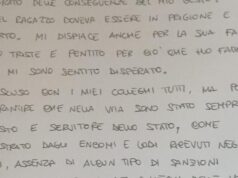 DELLE CONSEGUENZE DEL MIO
EL RAGAZZO DOVEVA ESSERE IN PRIGIONE E
RTO. MI DISPIACE ANCHE PER LA SUA FA
TRISTE E PENTITO PER CIO' CHE HO FATTO
MI SONO SENTITO DISPERATO.
SCUSO CON I MIEI COLLEGHI TUTTI, MA PO
RANTIRE CHE NELLA VITA SONO STATO SEMPR
STO E SERVITORE DELLO STATO, COME
STRATO DAGLI ENCOMI E LODI RICEVUTI NEGL
, ASSENZA DI ALCUN TIPO DI SANZIONI